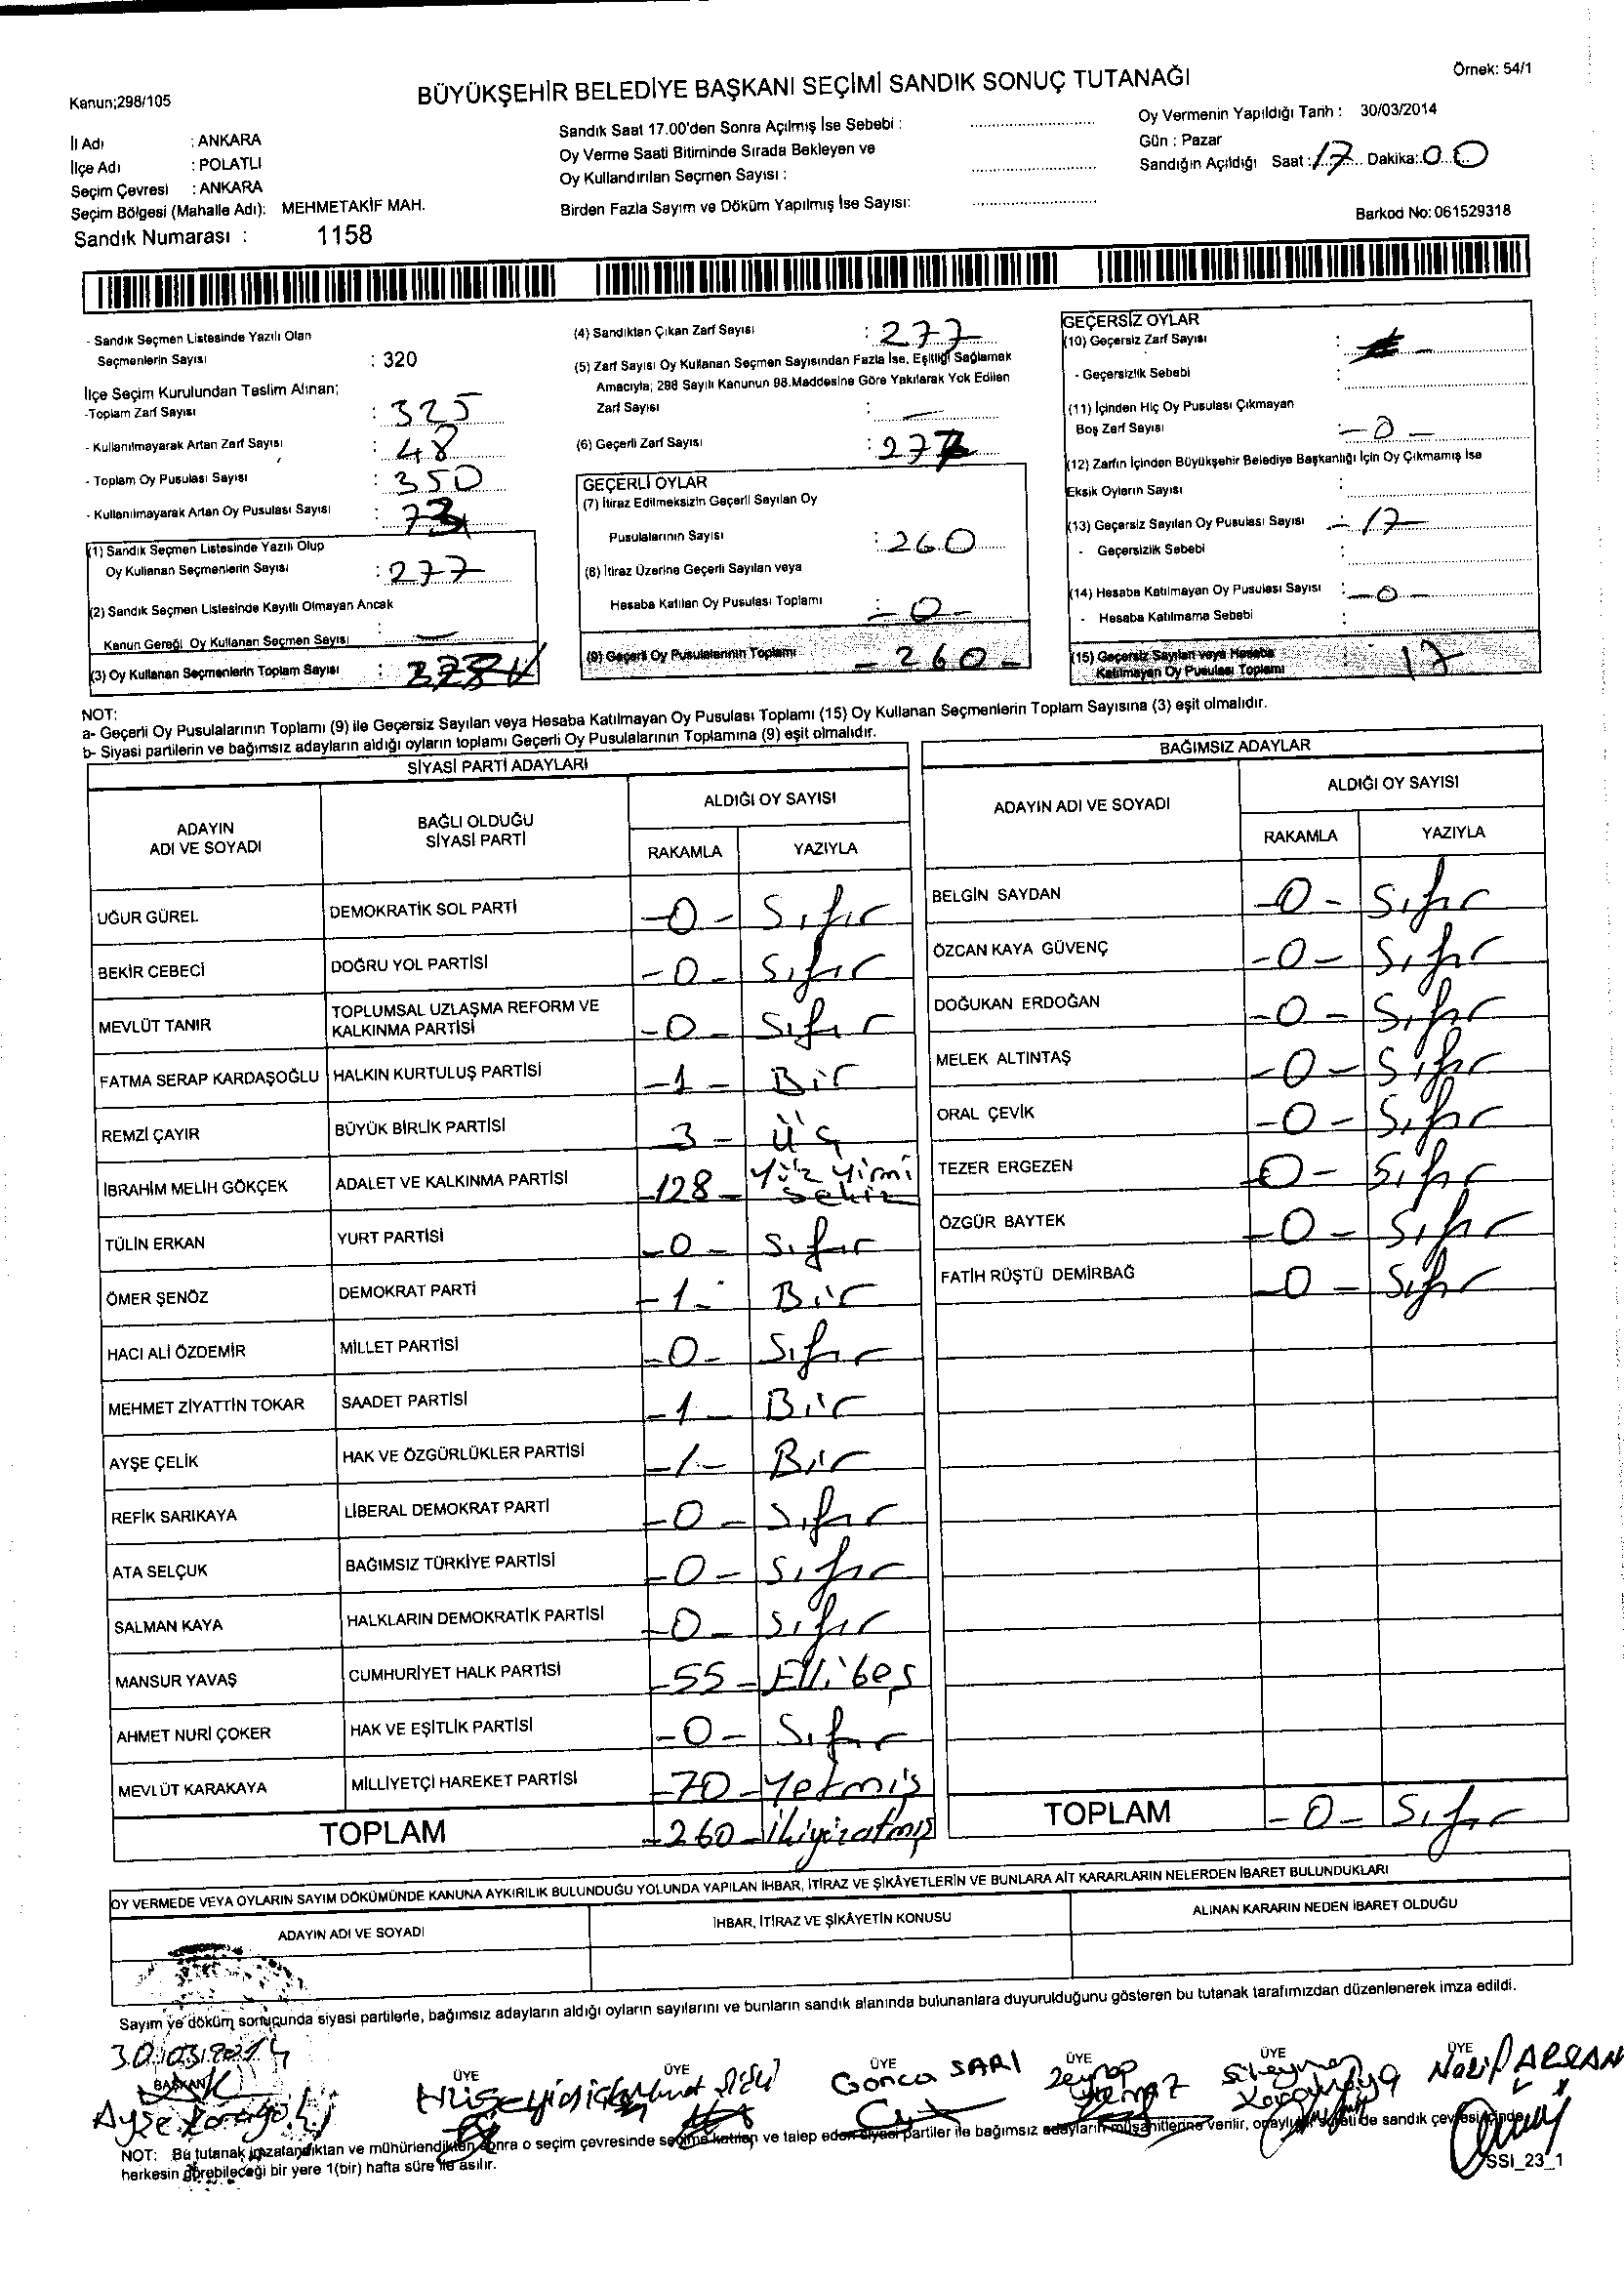 Kanun;298/105
BÜYÜKŞEHİR BELEDİYE BAŞKANI SEÇİMİ SANDIK SONUÇ TUTANAĞI
Örnek: 54/1
İl Adı : ANKARA
İlçe Adı : POLATLI
Seçim Çevresi : ANKARA
Seçim Bölgesi (Mahalle Adı): MEHMETAKİF MAH.
Sandık Numarası : 1158
Sandık Saat 17.00'den Sonra Açılmış İse Sebebi :
Oy Verme Saati Bitiminde Sırada Bekleyen ve
Oy Kullandırılan Seçmen Sayısı :
Birden Fazla Sayım ve Döküm Yapılmış İse Sayısı:
Oy Vermenin Yapıldığı Tarih : 30/03/2014
Gün : Pazar
Sandığın Açıldığı Saat : 17 Dakika: 00
Barkod No: 061529318
- Sandık Seçmen Listesinde Yazılı Olan
Seçmenlerin Sayısı : 320
İlçe Seçim Kurulundan Teslim Alınan;
-Toplam Zarf Sayısı : 325
- Kullanılmayarak Artan Zarf Sayısı : 48
- Toplam Oy Pusulası Sayısı : 350
- Kullanılmayarak Artan Oy Pusulası Sayısı : 73
(1) Sandık Seçmen Listesinde Yazılı Olup
Oy Kullanan Seçmenlerin Sayısı : 277
(2) Sandık Seçmen Listesinde Kayıtlı Olmayan Ancak
Kanun Gereği Oy Kullanan Seçmen Sayısı : —
(3) Oy Kullanan Seçmenlerin Toplam Sayısı :
(4) Sandıktan Çıkan Zarf Sayısı : 277
(5) Zarf Sayısı Oy Kullanan Seçmen Sayısından Fazla İse, Eşitliği Sağlamak
Amacıyla; 298 Sayılı Kanunun 98.Maddesine Göre Yakılarak Yok Edilen
Zarf Sayısı : —
(6) Geçerli Zarf Sayısı : 277
GEÇERLİ OYLAR
(7) İtiraz Edilmeksizin Geçerli Sayılan Oy
Pusulalarının Sayısı : 260
(8) İtiraz Üzerine Geçerli Sayılan veya
Hesaba Katılan Oy Pusulası Toplamı : -0-
(9) Geçerli Oy Pusulalarının Toplamı - 260 -
GEÇERSİZ OYLAR
(10) Geçersiz Zarf Sayısı :
- Geçersizlik Sebebi :
(11) İçinden Hiç Oy Pusulası Çıkmayan
Boş Zarf Sayısı : -0-
(12) Zarfın İçinden Büyükşehir Belediye Başkanlığı İçin Oy Çıkmamış İse
Eksik Oyların Sayısı :
(13) Geçersiz Sayılan Oy Pusulası Sayısı - 17 -
- Geçersizlik Sebebi :
(14) Hesaba Katılmayan Oy Pusulası Sayısı : -0-
- Hesaba Katılmama Sebebi :
(15) Geçersiz Sayılan veya Hesaba : 17
Katılmayan Oy Pusulası Toplamı
NOT:
a- Geçerli Oy Pusulalarının Toplamı (9) ile Geçersiz Sayılan veya Hesaba Katılmayan Oy Pusulası Toplamı (15) Oy Kullanan Seçmenlerin Toplam Sayısına (3) eşit olmalıdır.
b- Siyasi partilerin ve bağımsız adayların aldığı oyların toplamı Geçerli Oy Pusulalarının Toplamına (9) eşit olmalıdır.
SİYASİ PARTİ ADAYLARI
ADAYIN ADI VE SOYADI
BAĞLI OLDUĞU SİYASİ PARTİ
ALDIĞI OY SAYISI
RAKAMLA YAZIYLA
UĞUR GÜREL DEMOKRATİK SOL PARTİ -0- Sıfır
BEKİR CEBECİ DOĞRU YOL PARTİSİ -0- Sıfır
MEVLÜT TANIR TOPLUMSAL UZLAŞMA REFORM VE KALKINMA PARTİSİ -0- Sıfır
FATMA SERAP KARDAŞOĞLU HALKIN KURTULUŞ PARTİSİ -1- Bir
REMZİ ÇAYIR BÜYÜK BİRLİK PARTİSİ 3- Üç
İBRAHİM MELİH GÖKÇEK ADALET VE KALKINMA PARTİSİ -128- Yüz yirmi sekiz
TÜLİN ERKAN YURT PARTİSİ -0- Sıfır
ÖMER ŞENÖZ DEMOKRAT PARTİ -1- Bir
HACI ALİ ÖZDEMİR MİLLET PARTİSİ -0- Sıfır
MEHMET ZİYATTİN TOKAR SAADET PARTİSİ -1- Bir
AYŞE ÇELİK HAK VE ÖZGÜRLÜKLER PARTİSİ -1- Bir
REFİK SARIKAYA LİBERAL DEMOKRAT PARTİ -0- Sıfır
ATA SELÇUK BAĞIMSIZ TÜRKİYE PARTİSİ -0- Sıfır
SALMAN KAYA HALKLARIN DEMOKRATİK PARTİSİ -0- Sıfır
MANSUR YAVAŞ CUMHURİYET HALK PARTİSİ -55- Elli beş
AHMET NURİ ÇOKER HAK VE EŞİTLİK PARTİSİ -0- Sıfır
MEVLÜT KARAKAYA MİLLİYETÇİ HAREKET PARTİSİ -70- Yetmiş
TOPLAM -260- ikiyüzatmış
BAĞIMSIZ ADAYLAR
ADAYIN ADI VE SOYADI
ALDIĞI OY SAYISI
RAKAMLA YAZIYLA
BELGİN SAYDAN -0- Sıfır
ÖZCAN KAYA GÜVENÇ -0- Sıfır
DOĞUKAN ERDOĞAN -0- Sıfır
MELEK ALTINTAŞ -0- Sıfır
ORAL ÇEVİK -0- Sıfır
TEZER ERGEZEN 0- Sıfır
ÖZGÜR BAYTEK -0- Sıfır
FATİH RÜŞTÜ DEMİRBAĞ -0- Sıfır
TOPLAM -0- Sıfır
OY VERMEDE VEYA OYLARIN SAYIM DÖKÜMÜNDE KANUNA AYKIRILIK BULUNDUĞU YOLUNDA YAPILAN İHBAR, İTİRAZ VE ŞİKÂYETLERİN VE BUNLARA AİT KARARLARIN NELERDEN İBARET BULUNDUKLARI
ADAYIN ADI VE SOYADI
İHBAR, İTİRAZ VE ŞİKÂYETİN KONUSU
ALINAN KARARIN NEDEN İBARET OLDUĞU
Sayım ve döküm sonucunda siyasi partilerle, bağımsız adayların aldığı oyların sayılarını ve bunların sandık alanında bulunanlara duyurulduğunu gösteren bu tutanak tarafımızdan düzenlenerek imza edildi.
30.03.2014
BAŞKAN ÜYE ÜYE ÜYE ÜYE ÜYE ÜYE
Ayşe
Gonca SARI
Zeynep
NOT: Bu tutanak imzalandıktan ve mühürlendikten sonra o seçim çevresinde seçime katılan ve talep eden siyasi partiler ile bağımsız adayların müşahitlerine verilir, onaylı sureti de sandık çevresi içinde
herkesin görebileceği bir yere 1(bir) hafta süre ile asılır.
SSI_23_1